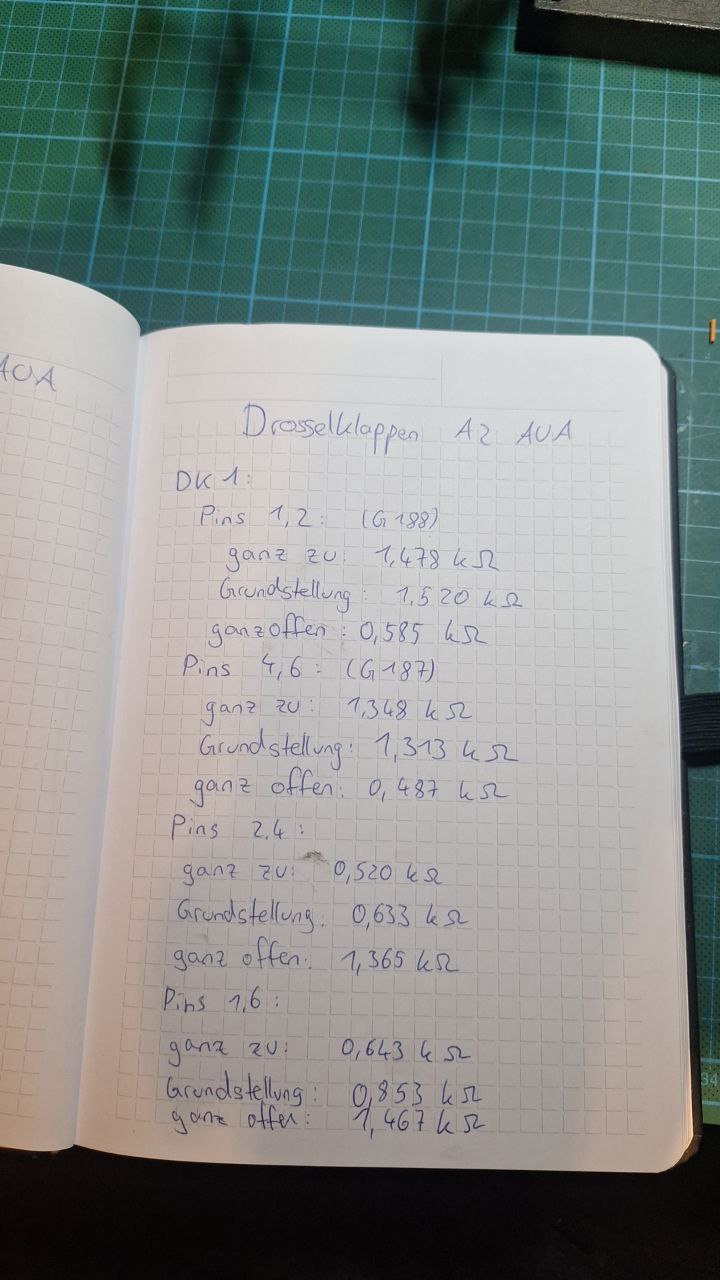 AUA
Drosselklappen A2 AUA
DK 1:
Pins 1,2: (G188)
ganz zu: 1,478 kΩ
Grundstellung: 1,520 kΩ
ganz offen: 0,585 kΩ
Pins 4,6: (G187)
ganz zu: 1,348 kΩ
Grundstellung: 1,313 kΩ
ganz offen: 0,487 kΩ
Pins 2,4:
ganz zu: 0,520 kΩ
Grundstellung: 0,633 kΩ
ganz offen: 1,365 kΩ
Pins 1,6:
ganz zu: 0,643 kΩ
Grundstellung: 0,853 kΩ
ganz offen: 1,467 kΩ
34